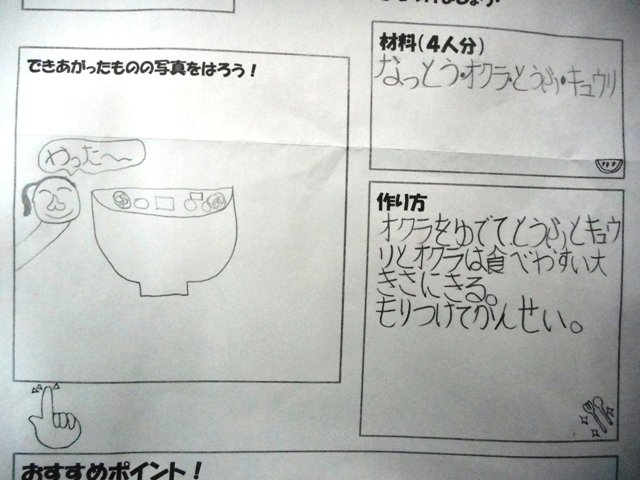 材料(4人分)
なっとう・オクラ・とうふ・キュウリ
できあがったものの写真をはろう!
やった〜〜
作り方
オクラをゆでて、とうふとキュウ
リとオクラは食べやすい大
きさにきる。
もりつけてかんせい。
おすすめポイント!